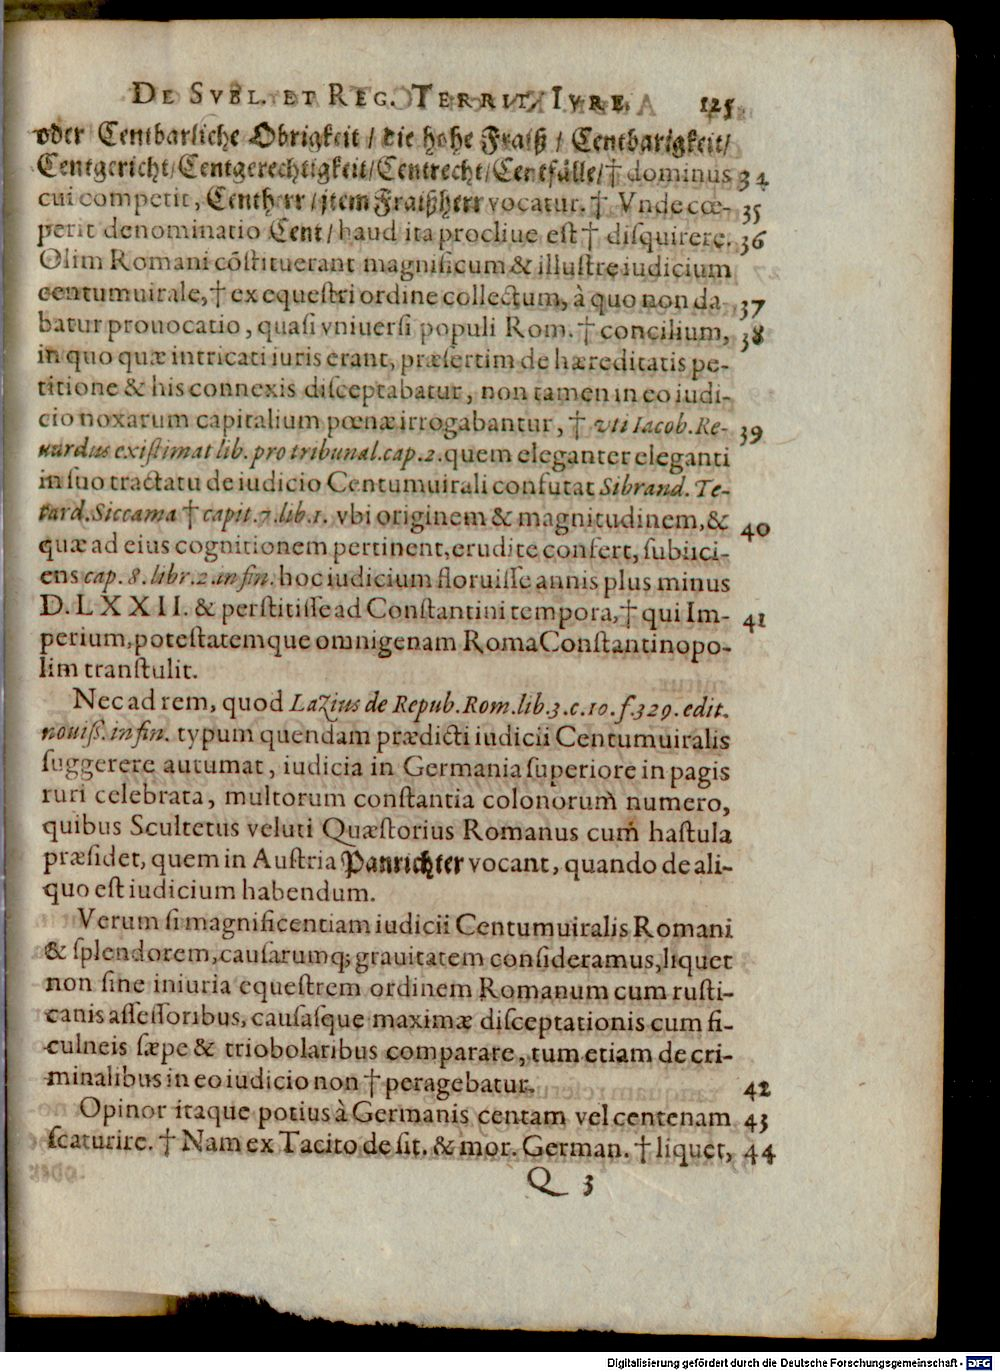 DE SVBL. ET REG. TERRIT. IVRE. 125
oder Centbarliche Obrigkeit / die hohe Fraiß / Centbarigkeit /
Centgericht / Centgerechtigkeit / Centrecht / Centfälle / † dominus 34
cui competit, Centherr / item Fraißherr vocatur. † Vnde cœ- 35
perit denominatio Cent / haud ita procliue est † disquirere. 36
Olim Romani cõstituerant magnificum & illustre iudicium
centumuirale, † ex equestri ordine collectum, à quo non da 37
batur prouocatio, quasi vniuersi populi Rom. † concilium, 38
in quo quæ intricati iuris erant, præsertim de hæreditatis pe-
titione & his connexis disceptabatur, non tamen in eo iudi-
cio noxarum capitalium pœnæ irrogabantur, † vti Iacob. Re- 39
uardus existimat lib. pro tribunal. cap. 2. quem eleganter eleganti
in suo tractatu de iudicio Centumuirali confutat Sibrand. Te-
tard. Siccama † capit. 7. lib. 1. vbi originem & magnitudinem, & 40
quæ ad eius cognitionem pertinent, erudite confert, subiici-
ens cap. 8. libr. 2. in fin. hoc iudicium floruisse annis plus minus
D. LXXII. & perstitisse ad Constantini tempora, † qui Im- 41
perium, potestatemque omnigenam Roma Constantinopo-
lim transtulit.
Nec ad rem, quod Lazius de Repub. Rom. lib. 3. c. 10. f. 329. edit.
nouiss. in fin. typum quendam prædicti iudicii Centumuiralis
suggerere autumat, iudicia in Germania superiore in pagis
ruri celebrata, multorum constantia colonorum numero,
quibus Scultetus veluti Quæstorius Romanus cum hastula
præsidet, quem in Austria Panrichter vocant, quando de ali-
quo est iudicium habendum.
Verum si magnificentiam iudicii Centumuiralis Romani
& splendorem, causarumq; grauitatem consideramus, liquet
non sine iniuria equestrem ordinem Romanum cum rusti-
canis assessoribus, causasque maximæ disceptationis cum fi-
culneis sæpe & triobolaribus comparare, tum etiam de cri-
minalibus in eo iudicio non † peragebatur. 42
Opinor itaque potius à Germanis centam vel centenam 43
scaturire. † Nam ex Tacito de sit. & mor. German. † liquet, 44
Q 3
Digitalisierung gefördert durch die Deutsche Forschungsgemeinschaft - DFG